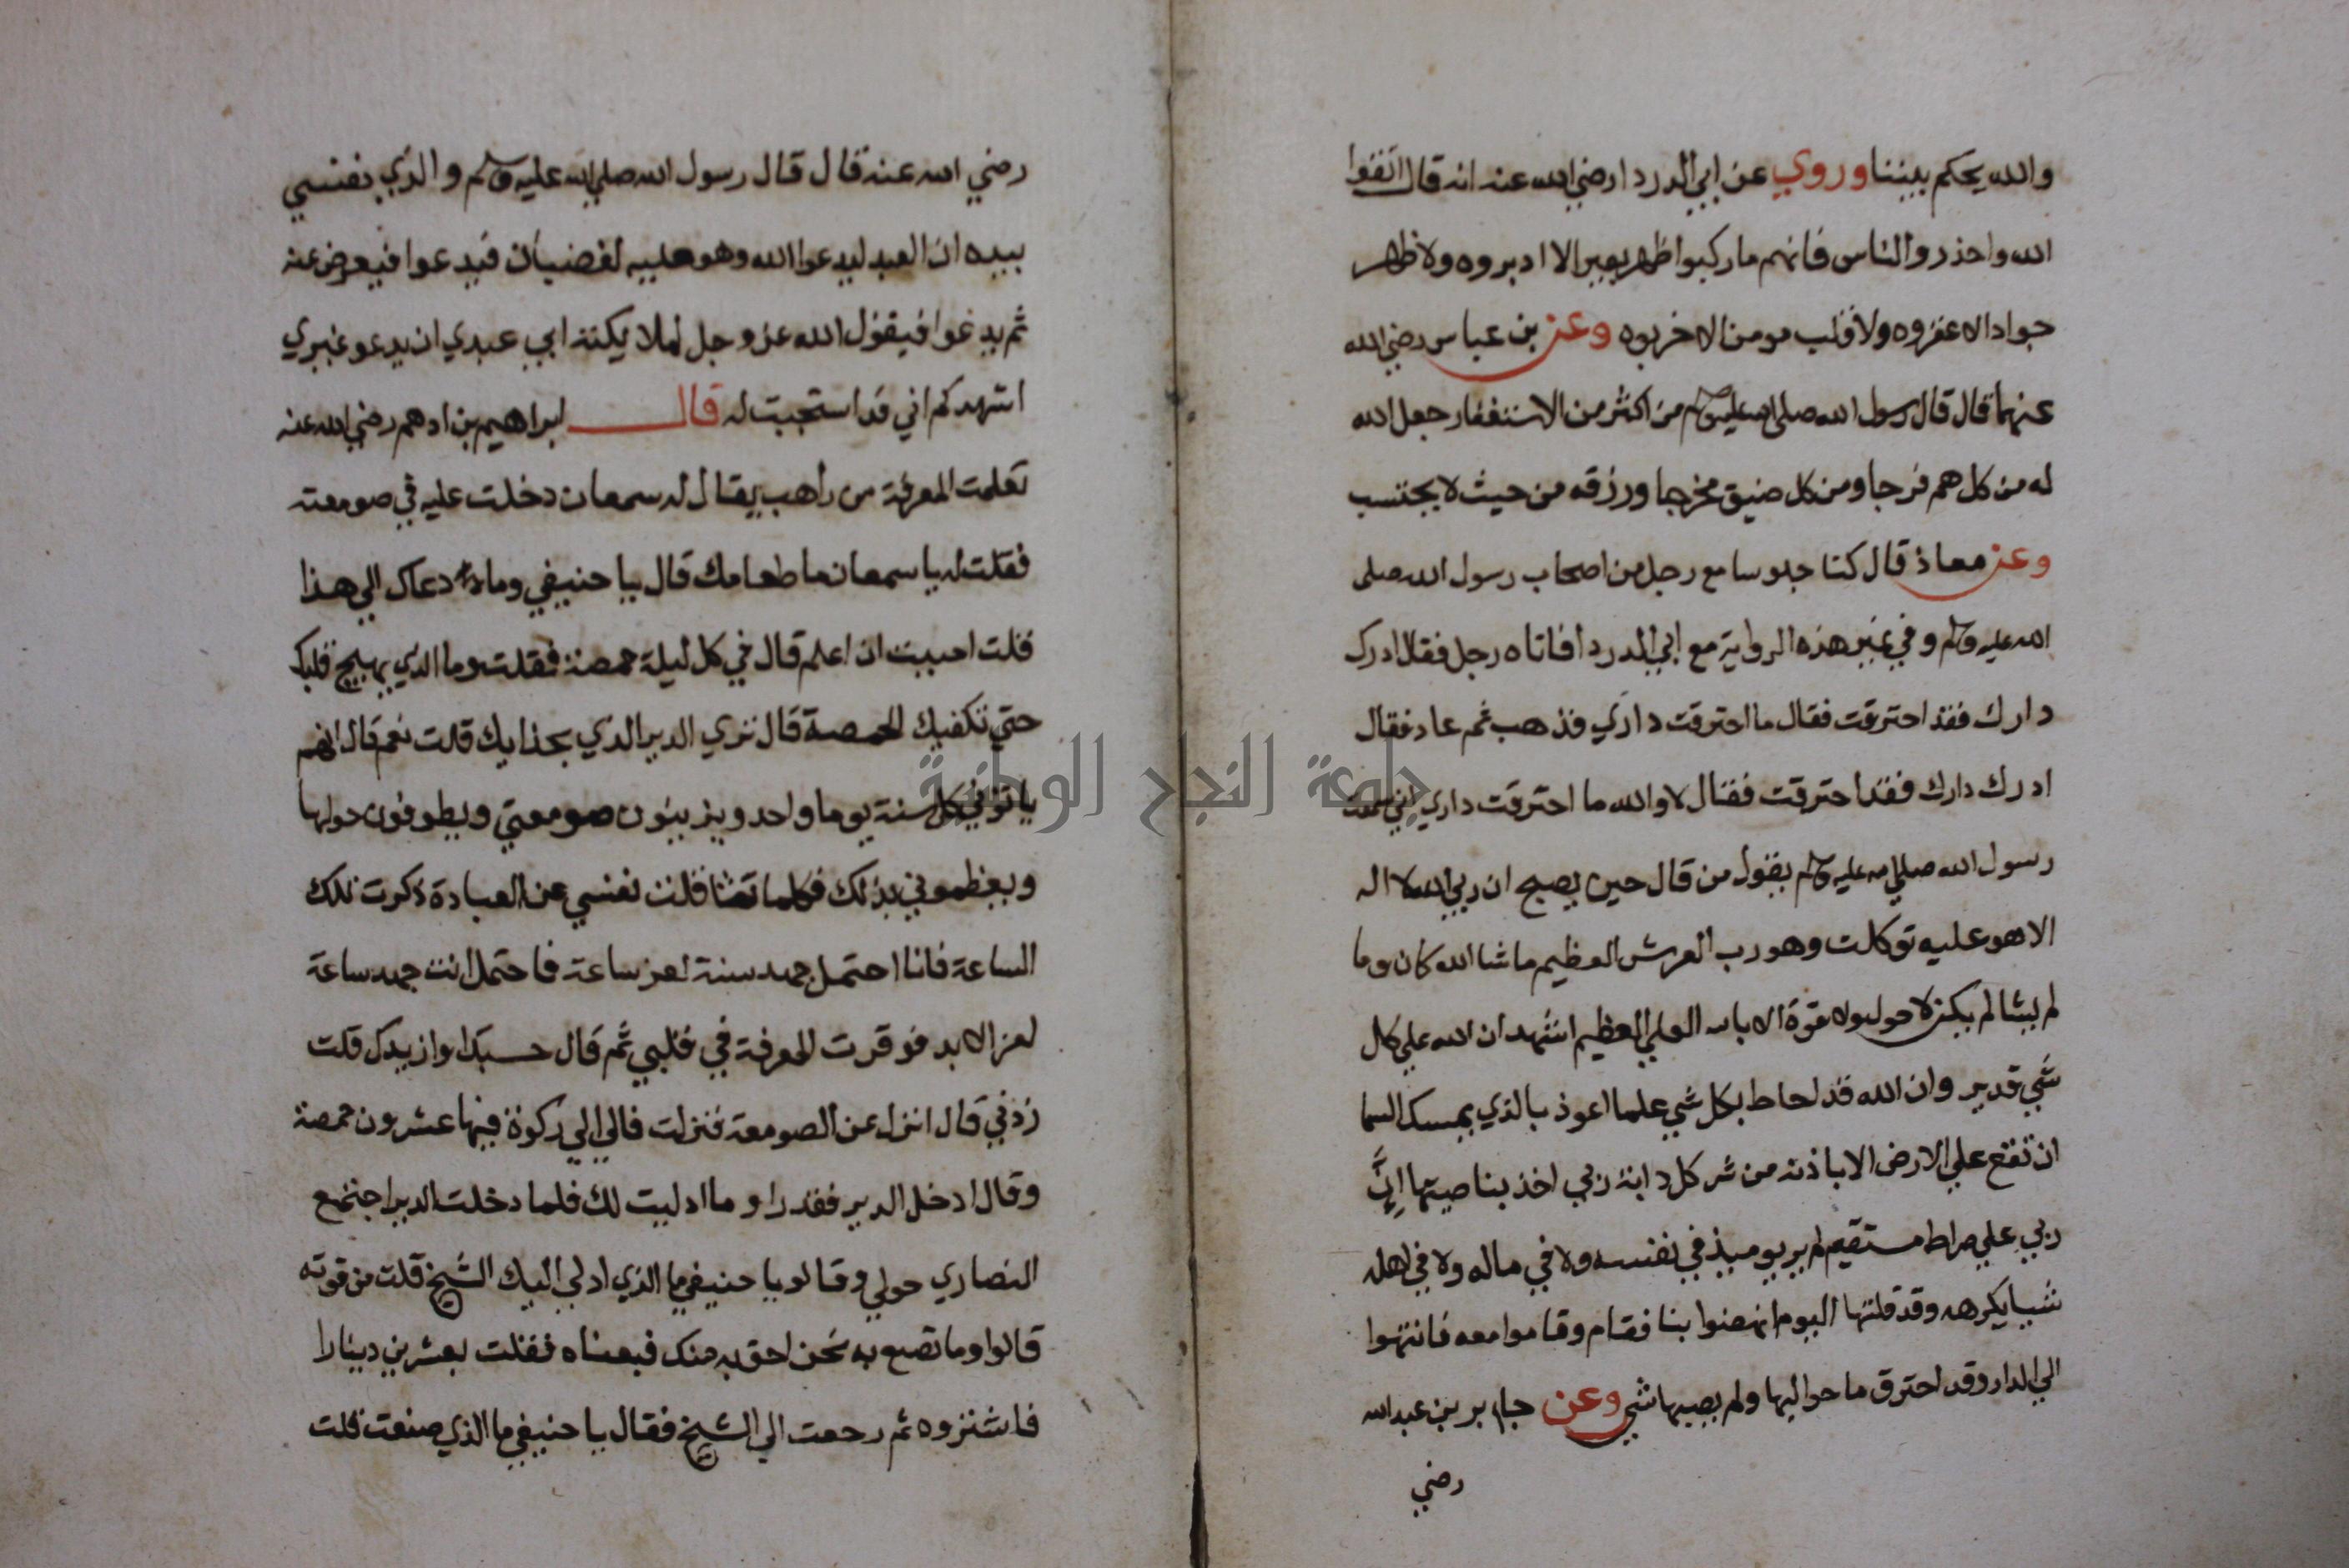 والله يحكم بيننا وروي عن ابي الدردا رضي الله عنه انه قال اتقوا
الله واحذروا الناس فانهم ما ركبوا ظهر بعير الا ادبروه ولا ظهر
جواد الا عقروه ولا قلب مومن الا خربوه وعن بن عباس رضي الله
عنهما قال قال رسول الله صلى الله عليه وسلم من اكثر من الاستغفار جعل الله
له من كل هم فرجا ومن كل ضيق مخرجا ورزقه من حيث لا يحتسب
وعن معاذ قال كنا جلوسا مع رجل من اصحاب رسول الله صلى
الله عليه وسلم وفي غير هذه الرواية مع ابي الدردا فاتاه رجل فقال ادرك
دارك فقد احترقت فقال ما احترقت داري فذهب ثم عاد فقال
ادرك دارك فقد احترقت فقال لا والله ما احترقت داري اني سمعت
رسول الله صلي الله عليه وسلم يقول من قال حين يصبح ان ربي الله لا اله
الا هو عليه توكلت وهو رب العرش العظيم ما شا الله كان وما
لم يشا لم يكن لا حول ولا قوة الا بالله العلي العظيم اشهد ان الله علي كل
شي قدير وان الله قد احاط بكل شي علما اعوذ بالذي يمسك السما
ان تقع علي الارض الا باذنه من شر كل دابة ربي اخذ بناصيتها إنَّ
ربي علي صراط مستقيم لم ير يوميذ في نفسه ولا في ماله ولا في اهله
شييا يكرهه وقد قلتها اليوم انهضوا بنا فقام وقاموا معه فانتهوا
الي الدار وقد احترق ما حواليها ولم يصبها شي وعن جابر بن عبد الله
رضي
رضي الله عنه قال قال رسول الله صلي الله عليه وسلم والذي نفسي
بيده ان العبد ليدعوا الله وهو عليه لغضبان فيدعوا فيعرض عنه
ثم يدعوا فيقول الله عز وجل لملايكته ابي عبدي ان يدعو غيري
اشهدكم اني قد استجبت له قال ابراهيم بن ادهم رضي الله عنه
تعلمت المعرفة من راهب يقال له سمعان دخلت عليه في صومعته
فقلت له يا سمعان ما طعامك قال يا حنيفي وما دعاك الي هذا
قلت احببت ان اعلم قال في كل ليلة حمصة فقلت وما الذي يهيج قلبك
حتي تكفيك الحمصة قال تري الدير الذي بحذايك قلت نعم قال انهم
ياتوني كل سنة يوما واحد ويزينون صومعتي ويطوفون حولها
ويعظموني بذلك فكلما تثاقلت نفسي عن العبادة ذكرت تلك
الساعة فانا احتمل جهد سنة لعز ساعة فاحتمل انت جهد ساعة
لعز الابد فوقرت المعرفة في قلبي ثم قال حسبك او ازيدك قلت
زدني قال انزل عن الصومعة فنزلت فالي الي ركوة فيها عشرون حمصة
وقال ادخل الدير فقد راو ما ادليت لك فلما دخلت الدير اجتمع
النصاري حولي وقالو يا حنيفي ما الذي ادلي اليك الشيخ قلت من قوته
قالوا وما تصنع به نحن احق به منك فبعناه فقلت بعشرين دينارا
فاشتروه ثم رجعت الي الشيخ فقال يا حنيفي ما الذي صنعت قلت
جامعة النجاح الوطنية